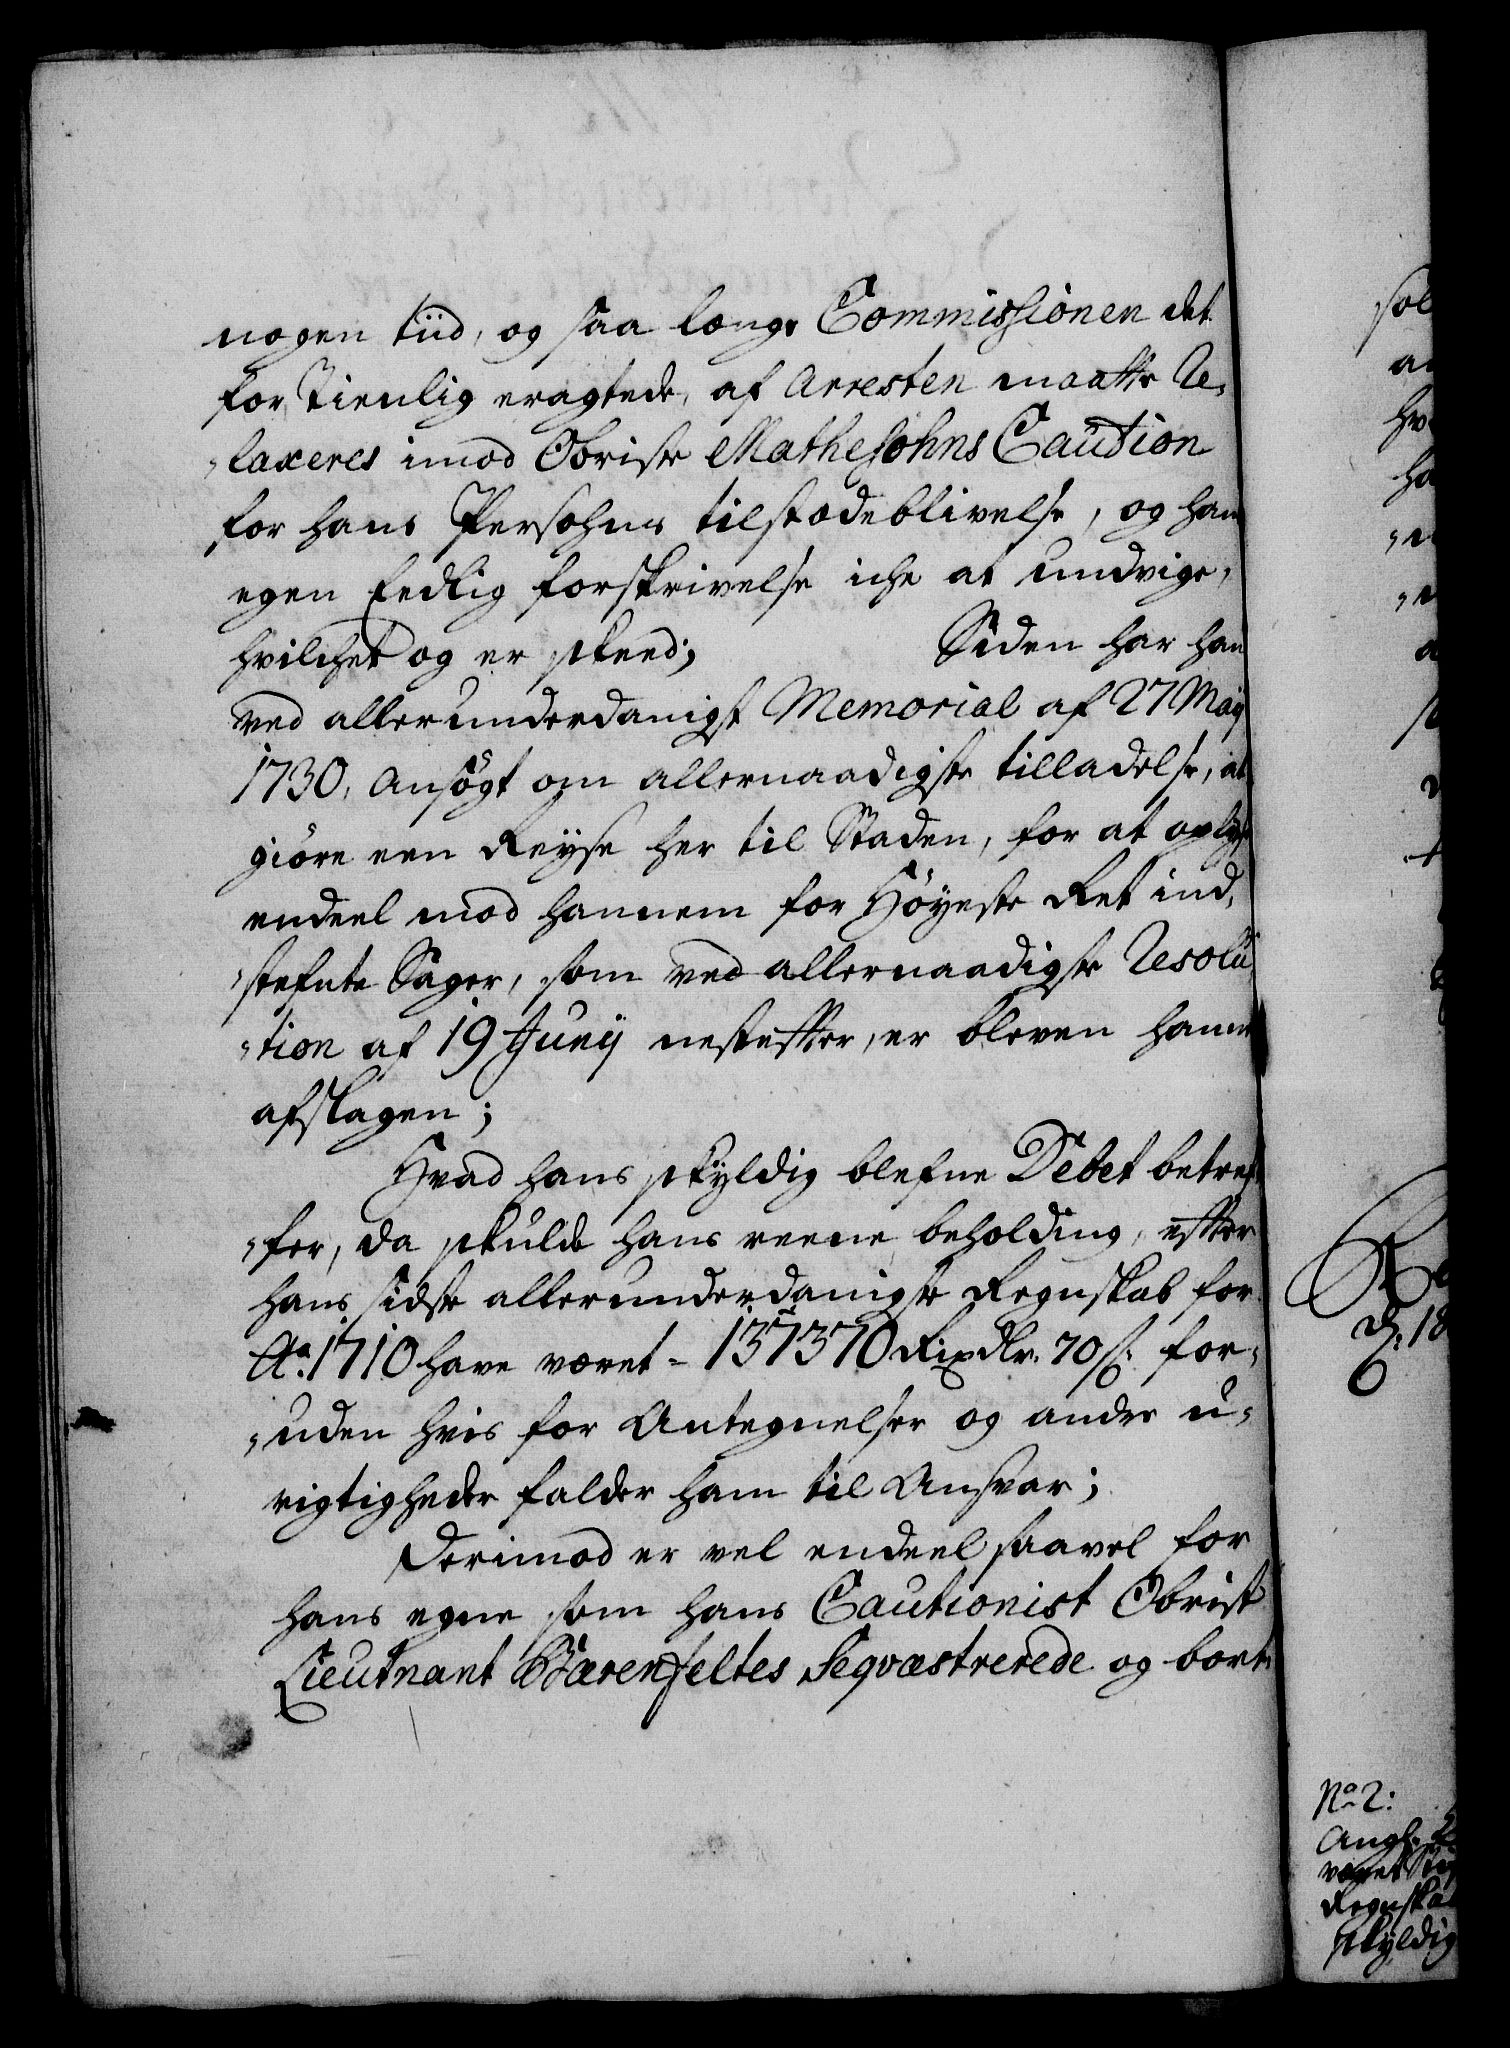 nogen tiid, og saa længe Commissionen det
for tienlig eragtede, af Arresten maatte Re-
-laxeres imod Obriste Mathesohns Caution
for hans Persohns tilstædeblivelse, og hans
egen Eedlig forskrivelse iche at undvige,
hvilchet og er skeed; Siden har han
ved allerunderdanigst Memorial af 27 Maij
1730, ansøgt om allernaadigste tilladelse, at
giøre een Reyse her til Staden, for at oplyse
endeel mod hannem for Høyeste Ret ind-
-stefnte Sager, som ved allernaadigste Resolu
-tion af 19 Junij nestefter, er bleven ham
afslagen;
Hvad hans skyldig blefne Debet betref-
-fer, da skulde hans reene beholding, efter
hans sidste allerunderdanigste Regnskab for
Ao. 1710 have været = 137370 Rixdlr. 70 ß. for-
-uden hvis for Antegnelser og andre u-
rigtigheder falder ham til Ansvar;
Derimod er vel endeel saavel for
hans egne som hans Cautionist Obrist
Lieutnant Bærenfeltes Seqvæstrerede og bort
sol
hv
ha
d. 18
No 2:
Angl.
været
Regnska
skyldig